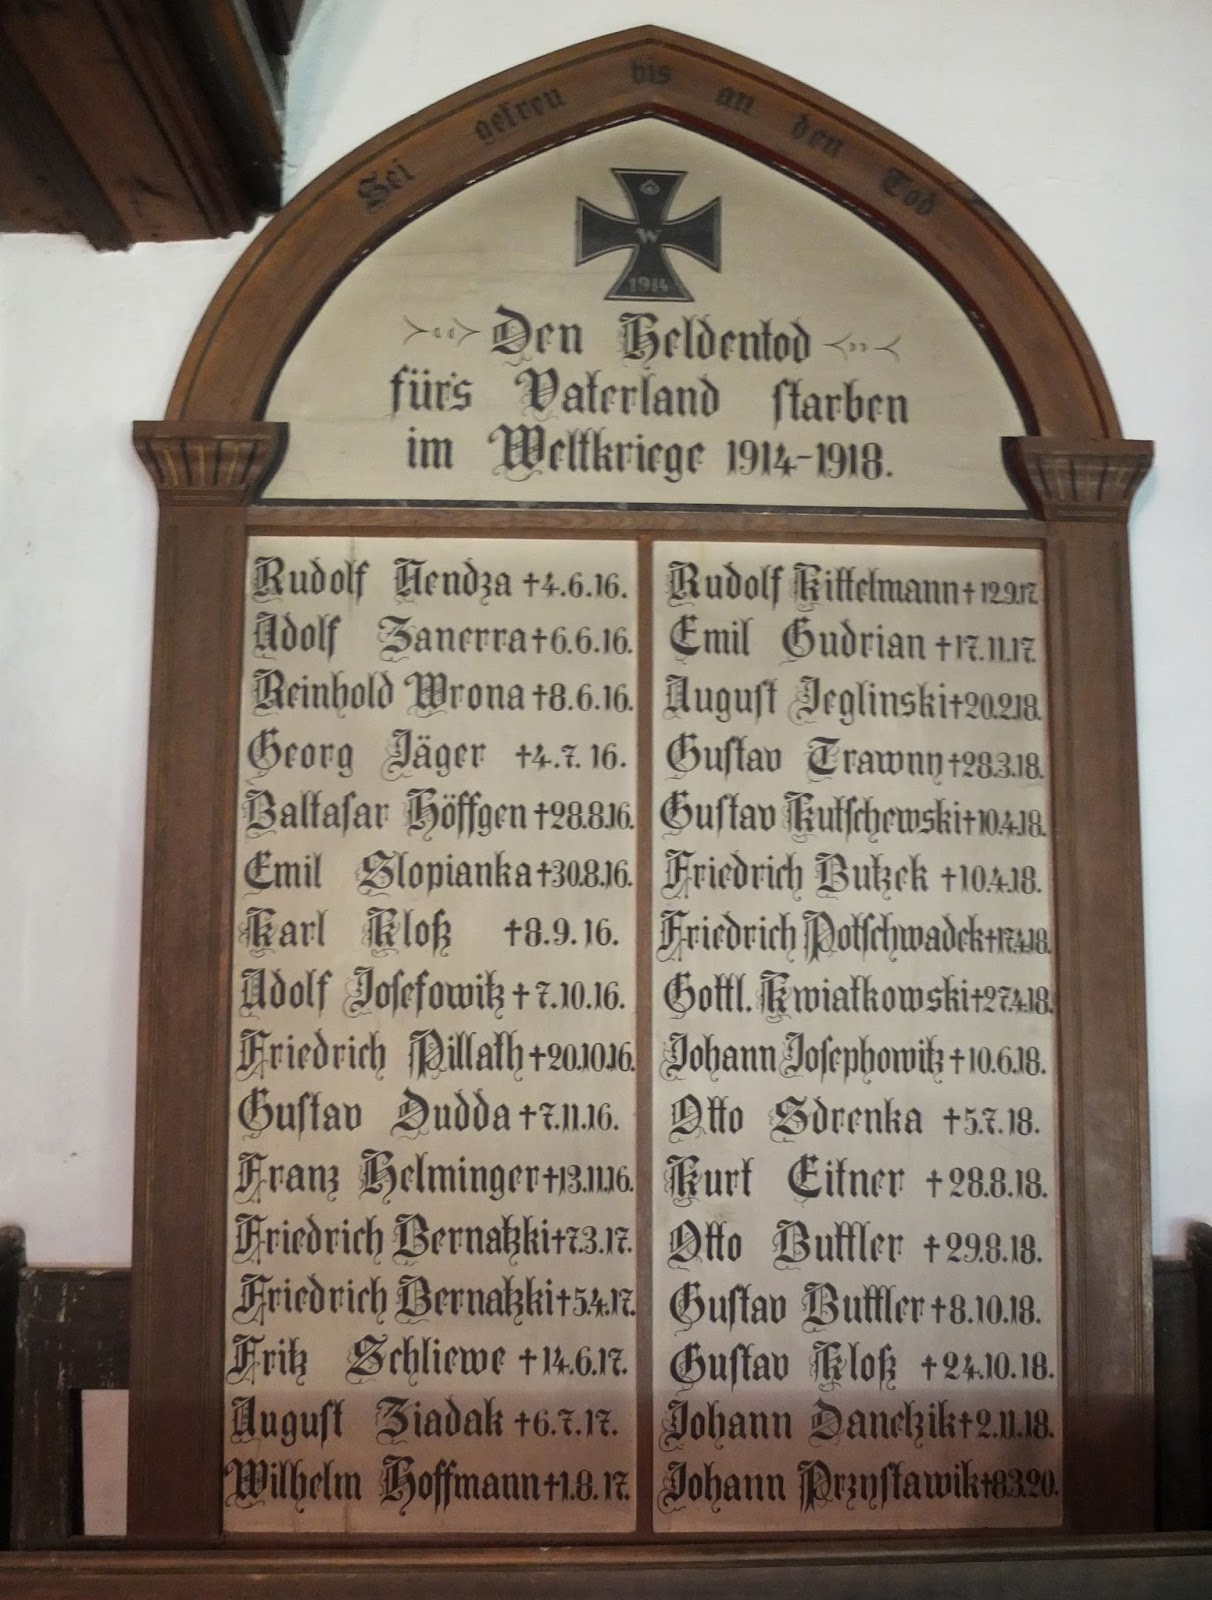 Sei getreu bis an den Tod
W
1914
Den Heldentod
für's Vaterland starben
im Weltkriege 1914-1918.
Rudolf Hendza †4.6.16.
Adolf Zanerra †6.6.16.
Reinhold Wrona †8.6.16.
Georg Jäger †4.7.16.
Baltasar Höffgen †28.8.16.
Emil Slopianka †30.8.16.
Karl Kloß †8.9.16.
Adolf Josefowitz †7.10.16.
Friedrich Pillath †20.10.16.
Gustav Dudda †7.11.16.
Franz Helminger †13.11.16.
Friedrich Bernatzki †7.3.17.
Friedrich Bernatzki †5.4.17.
Fritz Schliewe †14.6.17.
August Ziadak †6.7.17.
Wilhelm Hoffmann †1.8.17.
Rudolf Kittelmann †12.9.17.
Emil Gudrian †17.11.17.
August Jeglinski †20.2.18.
Gustav Trawny †28.3.18.
Gustav Kutschewski †10.4.18.
Friedrich Butzek †10.4.18.
Friedrich Potschwadek †17.4.18.
Gottl. Kwiatkowski †27.4.18.
Johann Josephowitz †10.6.18.
Otto Sdrenka †5.7.18.
Kurt Eitner †28.8.18.
Otto Buttler †29.8.18.
Gustav Buttler †8.10.18.
Gustav Kloß †24.10.18.
Johann Danelzik †2.11.18.
Johann Przystawik †8.3.20.